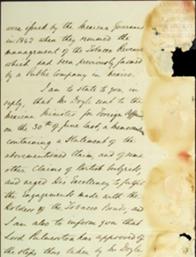 were issued by the Mexican Government
in 1842 when they resumed the
management of the Tobacco Revenue
which had been previously farmed
by a Public Company in Mexico.
I am to state to you, in
reply, that Mr Doyle sent to the
Mexican Minister for Foreign Affairs
on the 30th of June last, a Memorandum
containing a Statement of the
abovementioned Claim, and of some
other Claims of British Subjects
and urged His Excellency to fulfil
the Engagements made with the
Holders of the Tobacco Bonds, and
I am also to inform you that
Lord Palmerston has approved of
the steps thus taken by Mr Doyle